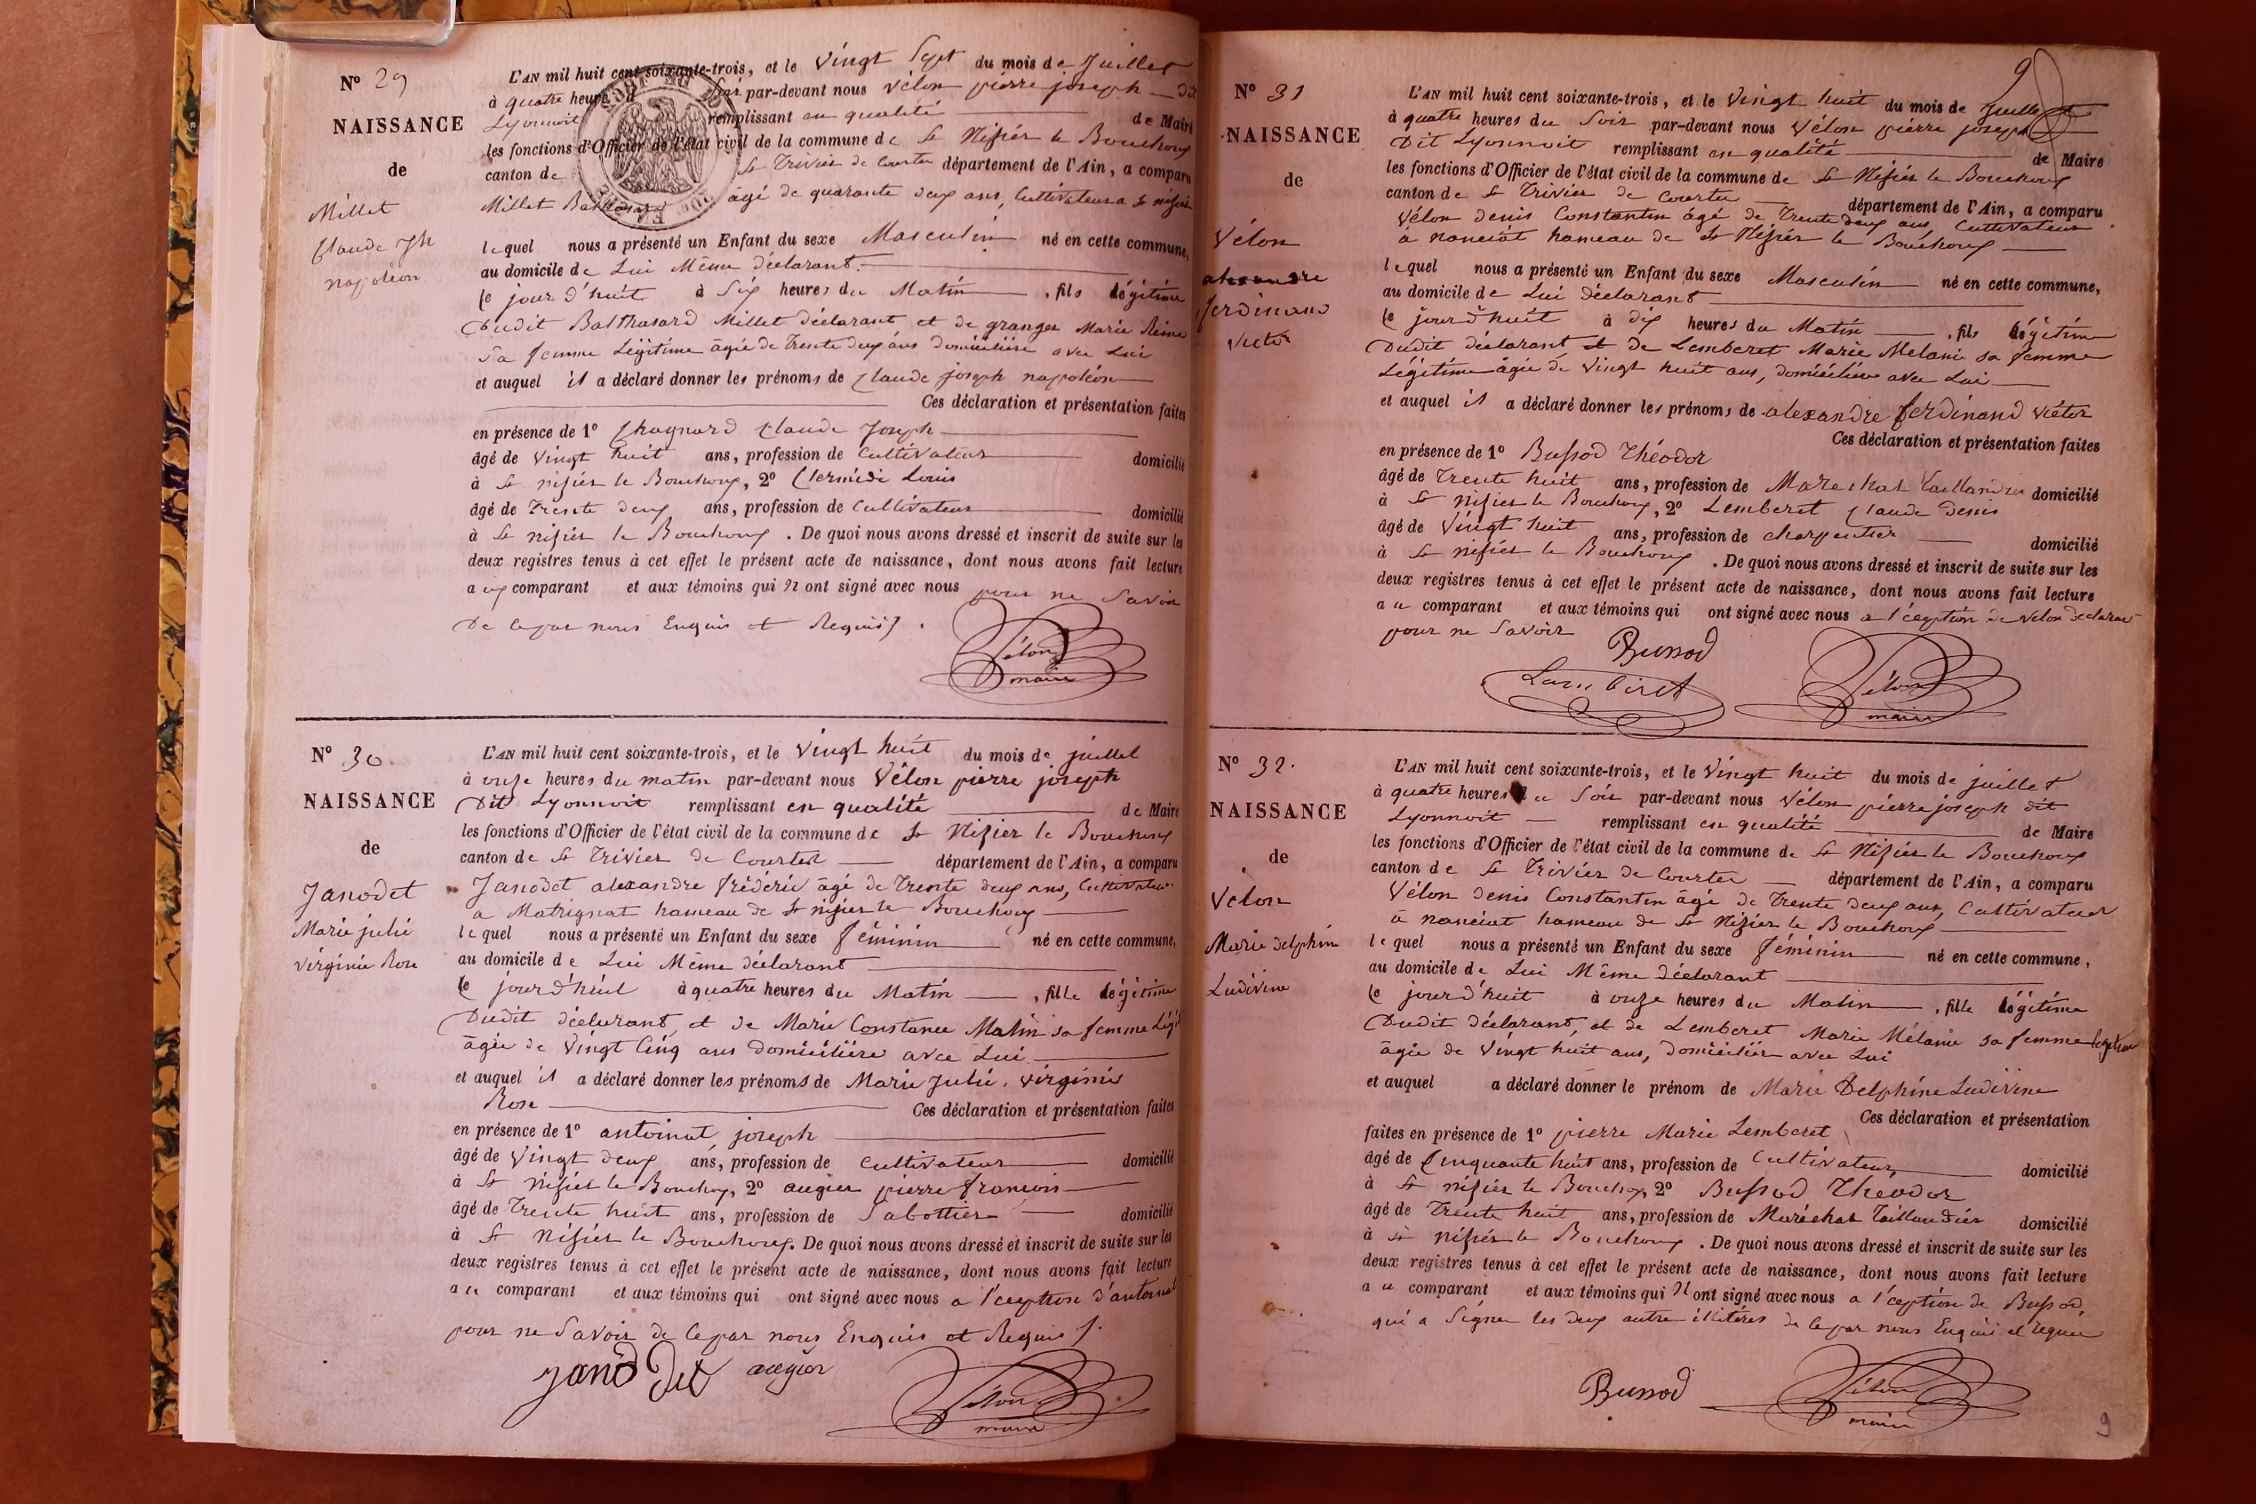 N° 29
NAISSANCE
de
Millet
Claude Jh
napoléon
L'AN mil huit cent soixante-trois, et le Vingt Sept du mois de Juillet
à quatre heures d Soir par-devant nous Vélon pierre joseph dit
Lyonnoit remplissant en qualité de Maire
les fonctions d'Officier de l'état civil de la commune de St Nizier le Bouchoux
canton de St Trivier de Courtes département de l'Ain, a comparu
Millet Balthasard âgé de quarante deux ans, Cultivateur a St nizier
lequel nous a présenté un Enfant du sexe Masculin né en cette commune,
au domicile de Lui Même déclarant.
le jour d'huit à Six heures du Matin , fils légitime
Dudit Balthasard Millet déclarant et de granger Marie Reine
Sa femme Légitime âgée de Trente deux ans domiciliée avec Lui
et auquel il a déclaré donner les prénoms de Claude joseph napoléon
Ces déclaration et présentation faites
en présence de 1° Chagnard Claude Joseph
âgé de Vingt huit ans, profession de Cultivateur domicilié
à St nizier le Bouchoux, 2° Clermidi Louis
âgé de Trente deux ans, profession de Cultivateur domicilié
à St nizier le Bouchoux . De quoi nous avons dressé et inscrit de suite sur les
deux registres tenus à cet effet le présent acte de naissance, dont nous avons fait lecture
a ux comparant et aux témoins qui N ont signé avec nous pour ne Savoir
De ce par nous Enquis et Requis .
Vélon
maire
N° 30.
NAISSANCE
de
Janodet
Marie julie
virginie Rose
L'AN mil huit cent soixante-trois, et le Vingt huit du mois de juillet
à onze heures du matin par-devant nous Vélon pierre joseph
Dit Lyonnoit remplissant en qualité de Maire
les fonctions d'Officier de l'état civil de la commune de St Nizier le Bouchoux
canton de St Trivier de Courtes département de l'Ain, a comparu
Janodet alexandre frédéric âgé de Trente deux ans, Cultivateur
a Matrignat hameau de St nizier le Bouchoux
lequel nous a présenté un Enfant du sexe féminin né en cette commune,
au domicile de Lui Même déclarant
le jour d'huit à quatre heures du Matin , fille légitime
Dudit déclarant, et de Marie Constance Matin sa femme Légi
âgée de Vingt Cinq ans domiciliée avec Lui
et auquel il a déclaré donner les prénoms de Marie Julie. virginie
Rose Ces déclaration et présentation faites
en présence de 1° antoinat joseph
âgé de Vingt deux ans, profession de Cultivateur domicilié
à St nizier le Bouchoux, 2° augier pierre françois
âgé de Trente huit ans, profession de Sabottier domicilié
à St Nizier le Bouchoux. De quoi nous avons dressé et inscrit de suite sur les
deux registres tenus à cet effet le présent acte de naissance, dont nous avons fait lecture
a u comparant et aux témoins qui ont signé avec nous a l'éception d'antoinat
pour ne Savoir de ce par nous Enquis et Requis
Janodet augier
Vélon
maire
9
N° 31
NAISSANCE
de
Vélon
alexandre
ferdinand
Victor
L'AN mil huit cent soixante-trois, et le Vingt huit du mois de juillet
à quatre heures du Soir par-devant nous Vélon pierre joseph
Dit Lyonnoit remplissant en qualité de Maire
les fonctions d'Officier de l'état civil de la commune de St Nizier le Bouchoux
canton de St Trivier de Courtes département de l'Ain, a comparu
Vélon denis Constantin âgé de Trente deux ans Cultivateur
à nanciat hameau de St Nizier le Bouchoux
lequel nous a présenté un Enfant du sexe Masculin né en cette commune,
au domicile de Lui déclarant
le jour d'huit à dix heures du Matin , fils légitime
Dudit déclarant et de Lemberet Marie Mélanie sa femme
Légitime âgée de Vingt huit ans, domiciliée avec Lui
et auquel il a déclaré donner les prénoms de alexandre ferdinand Victor
Ces déclaration et présentation faites
en présence de 1° Bussod Théodor
âgé de Trente huit ans, profession de Marechal Taillandier domicilié
à St nizier le Bouchoux, 2° Lemberet Claude Denis
âgé de Vingt huit ans, profession de charpentier domicilié
à St nizier le Bouchoux . De quoi nous avons dressé et inscrit de suite sur les
deux registres tenus à cet effet le présent acte de naissance, dont nous avons fait lecture
a u comparant et aux témoins qui ont signé avec nous a l'éception de Vélon déclarant
pour ne Savoir
Bussod
Lamberet
Vélon
maire
N° 32.
NAISSANCE
de
Vélon
Marie delphine
Ludivine
L'AN mil huit cent soixante-trois, et le Vingt huit du mois de juillet
à quatre heures du Soir par-devant nous Vélon pierre joseph dit
Lyonnoit remplissant en qualité de Maire
les fonctions d'Officier de l'état civil de la commune de St Nizier le Bouchoux
canton de St Trivier de Courtes département de l'Ain, a comparu
Vélon denis Constantin âgé de Trente deux ans, Cultivateur
à nanciat hameau de St Nizier le Bouchoux
lequel nous a présenté un Enfant du sexe féminin né en cette commune,
au domicile de Lui Même déclarant
le jour d'huit à onze heures du Matin , fille légitime
Dudit déclarant, et de Lemberet Marie Mélanie sa femme légitime
âgée de Vingt huit ans, domiciliée avec Lui
et auquel a déclaré donner le prénom de Marie Delphine Ludivine
Ces déclaration et présentation
faites en présence de 1° pierre Marie Lemberet
âgé de Cinquante huit ans, profession de Cultivateur domicilié
à St nizier le Bouchoux, 2° Bussod Théodor
âgé de Trente huit ans, profession de Maréchal Taillandier domicilié
à St nizier le Bouchoux . De quoi nous avons dressé et inscrit de suite sur les
deux registres tenus à cet effet le présent acte de naissance, dont nous avons fait lecture
a u comparant et aux témoins qui N ont signé avec nous a l'éception de Bussod,
qui a Signé les deux autre illitérés de ce par nous Enquis et requis
Bussod
Vélon
maire
9